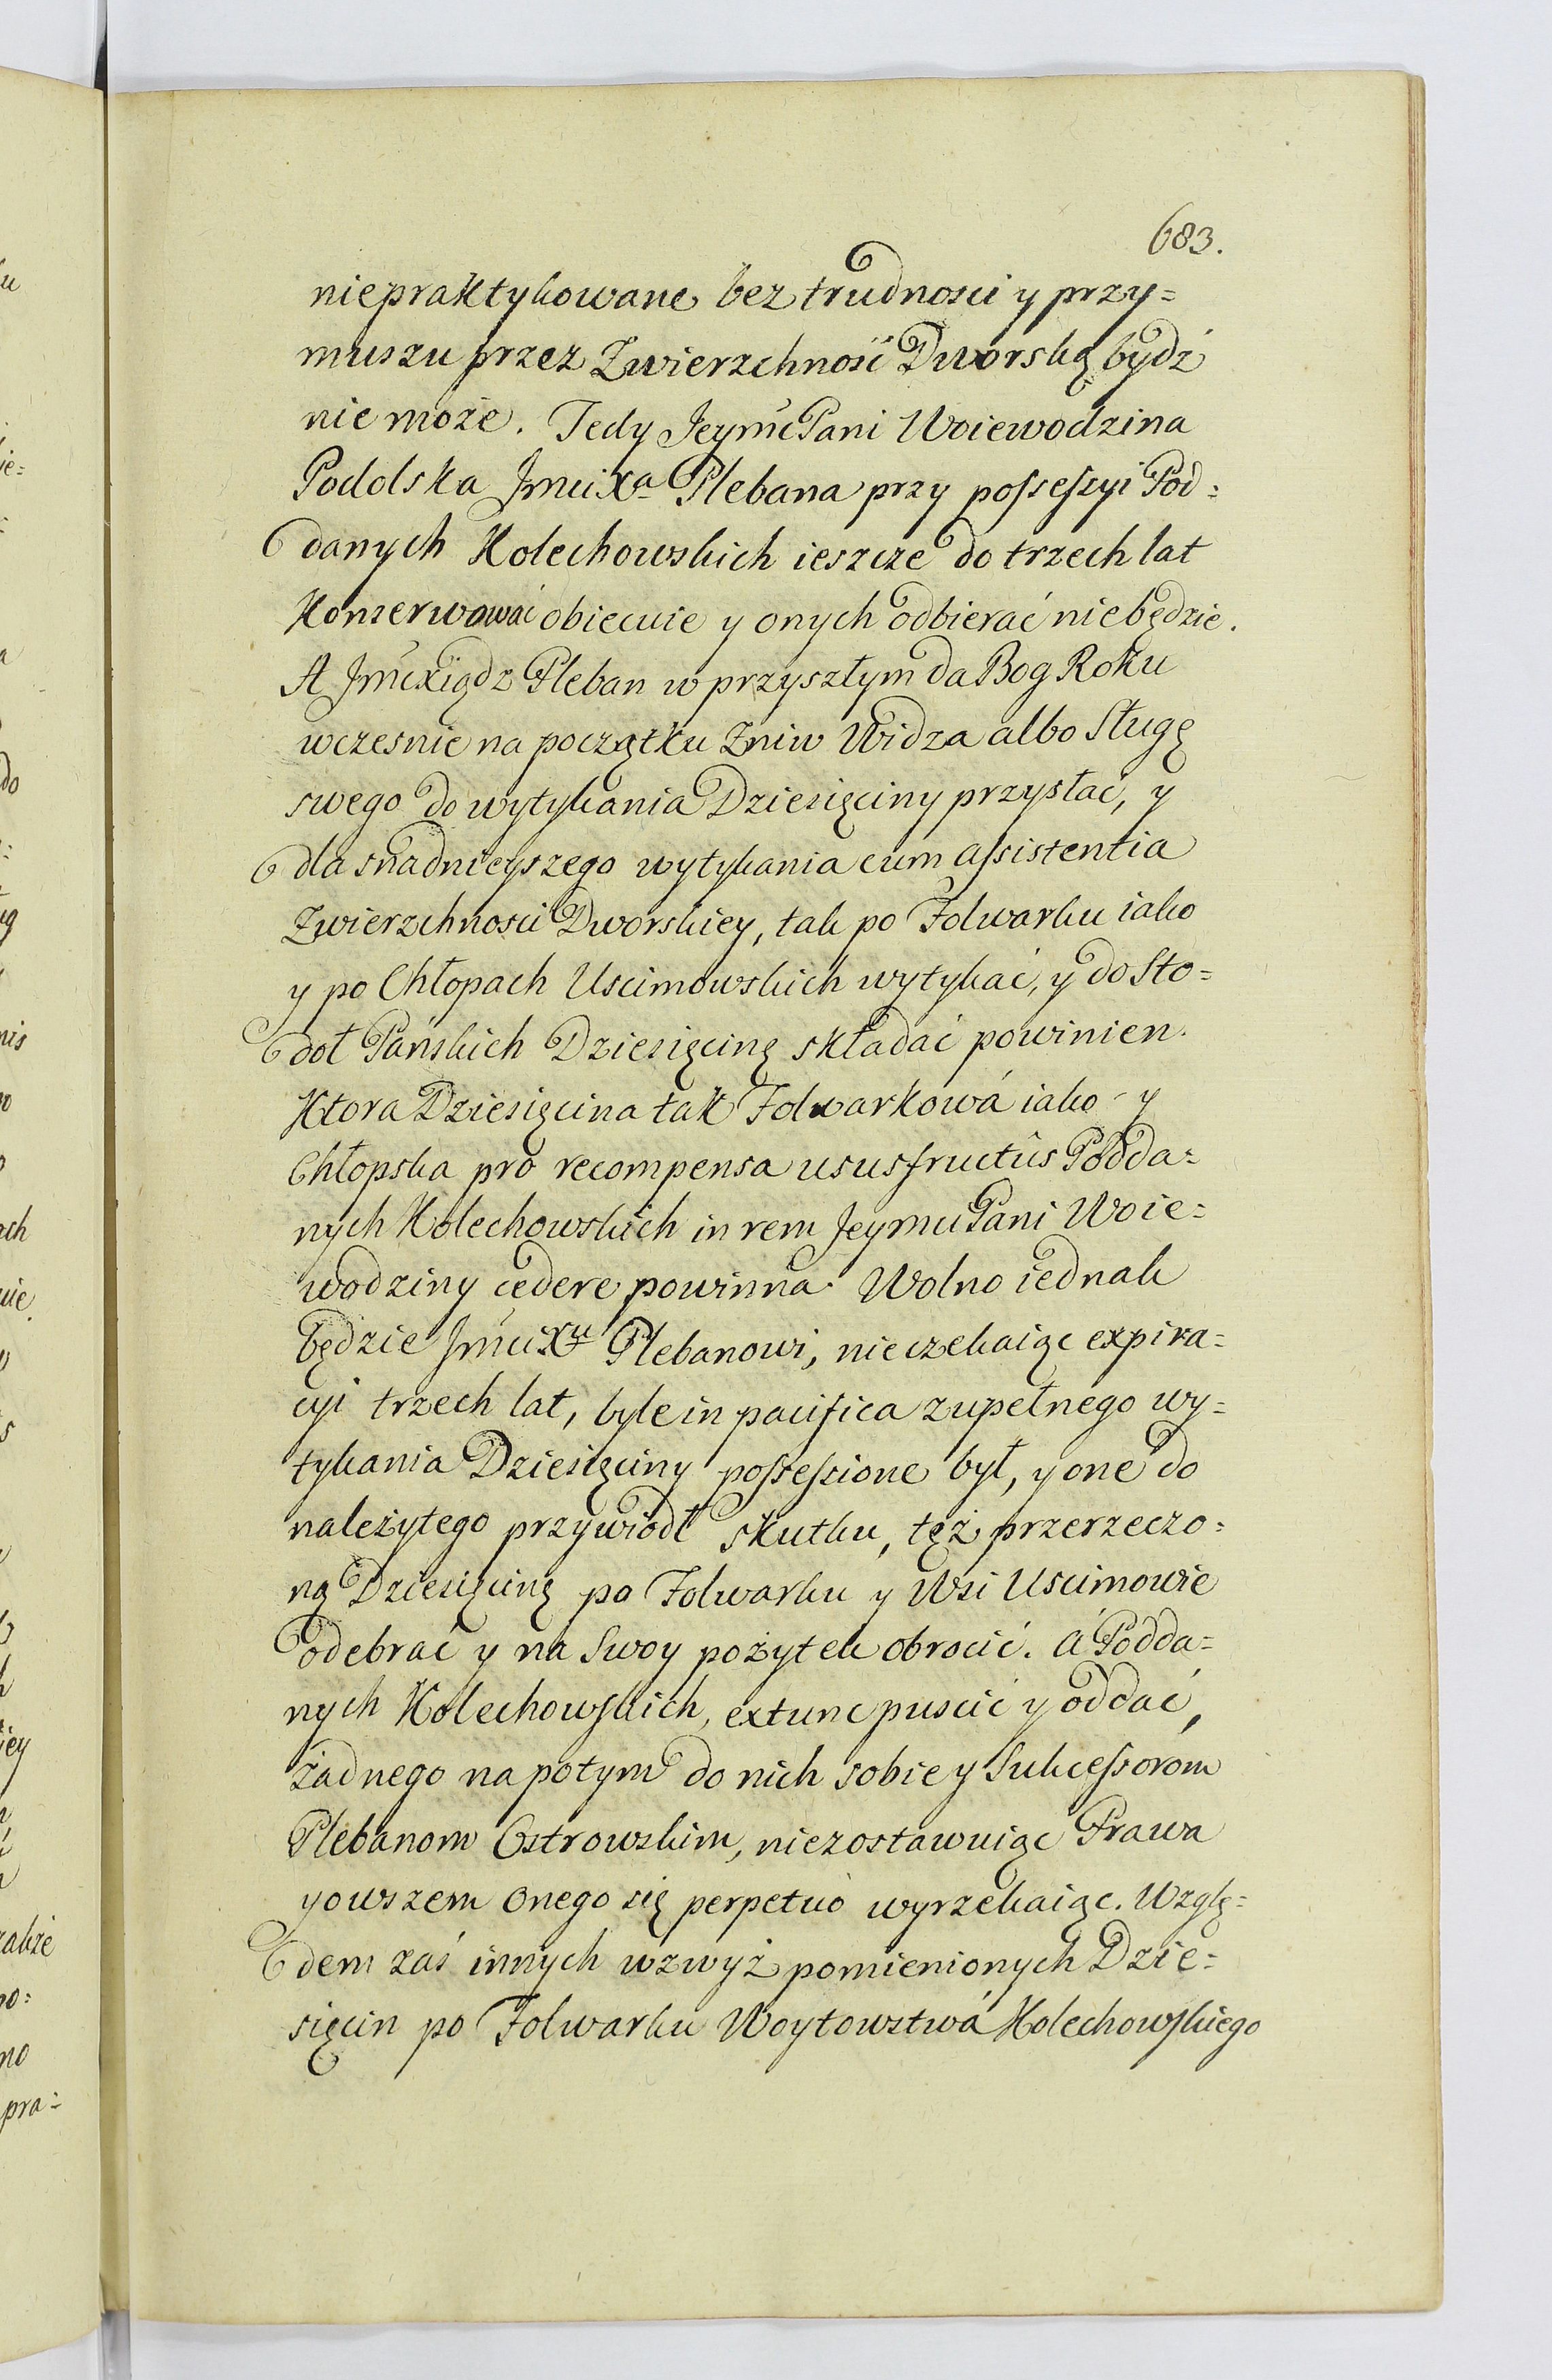 683.
niepraktykowane bez trudnosci y przy=
muszu przez Zwierzchność Dworską bydź
nie może. Tedy Jeymć Pani Woiewodzina
Podolska Jmci Xa Plebana przy possessyi Pod=
danych Kolechowskich ieszcze do trzech lat
Konserwować obiecuie y onych odbierać niebędzie.
A Jmć Xiądz Pleban w przyszłym da Bog Roku
wczesnie na początku Zniw Widza albo Sługę
swego do wytykania Dziesięciny przysłać, y
dla snadnieyszego wytykania cum assistentia
Zwierzchnosci Dworskiey, tak po Folwarku iako
y po Chłopach Uscimowskich wytykać, y do Sto=
doł Pańskich Dziesięcinę składać powinien.
Ktora Dziesięcina tak Folwarkowá iako y
Chłopska pro recompensa ususfructûs Podda=
nych Kolechowskich in rem Jeymci Pani Woie=
wodziny cedere powinna. Wolno iednak
będzie Jmci Xu Plebanowi, nieczekaiąc expira=
cyi trzech lat, byle in pacifica zupełnego wy=
tykania Dziesięciny possessione był, y one do
należytego przywiodł skutku, tęż przerzeczo=
ną Dziesięcinę po Folwarku y Wsi Uscimowie
odebrać y na Swoy pożytek obrocić. á Podda=
nych Kolechowskich, extunc puscić y oddać,
żadnego napotym do nich sobie y Sukcessorom
Plebanom Ostrowskim, niezostawuiąc Prawa
yowszem onego się perpetuo wyrzekaiąc. Wzglę=
dem zaś innych wzwyż pomienionych Dzie=
sięcin po Folwarku Woytowstwá Kolechowskiego